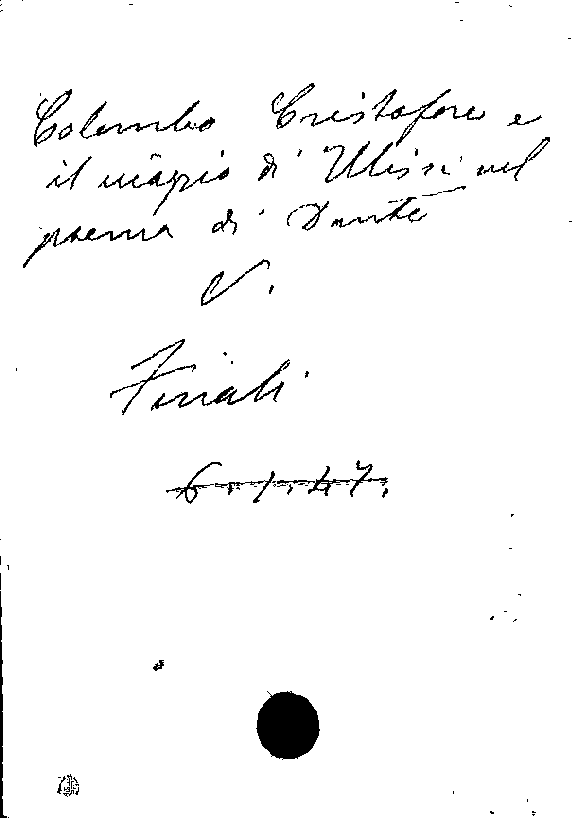 Colombo Cristoforo e
il viagio di Ulisse nel
poema di Dante
V.
Finali
6.1.47.